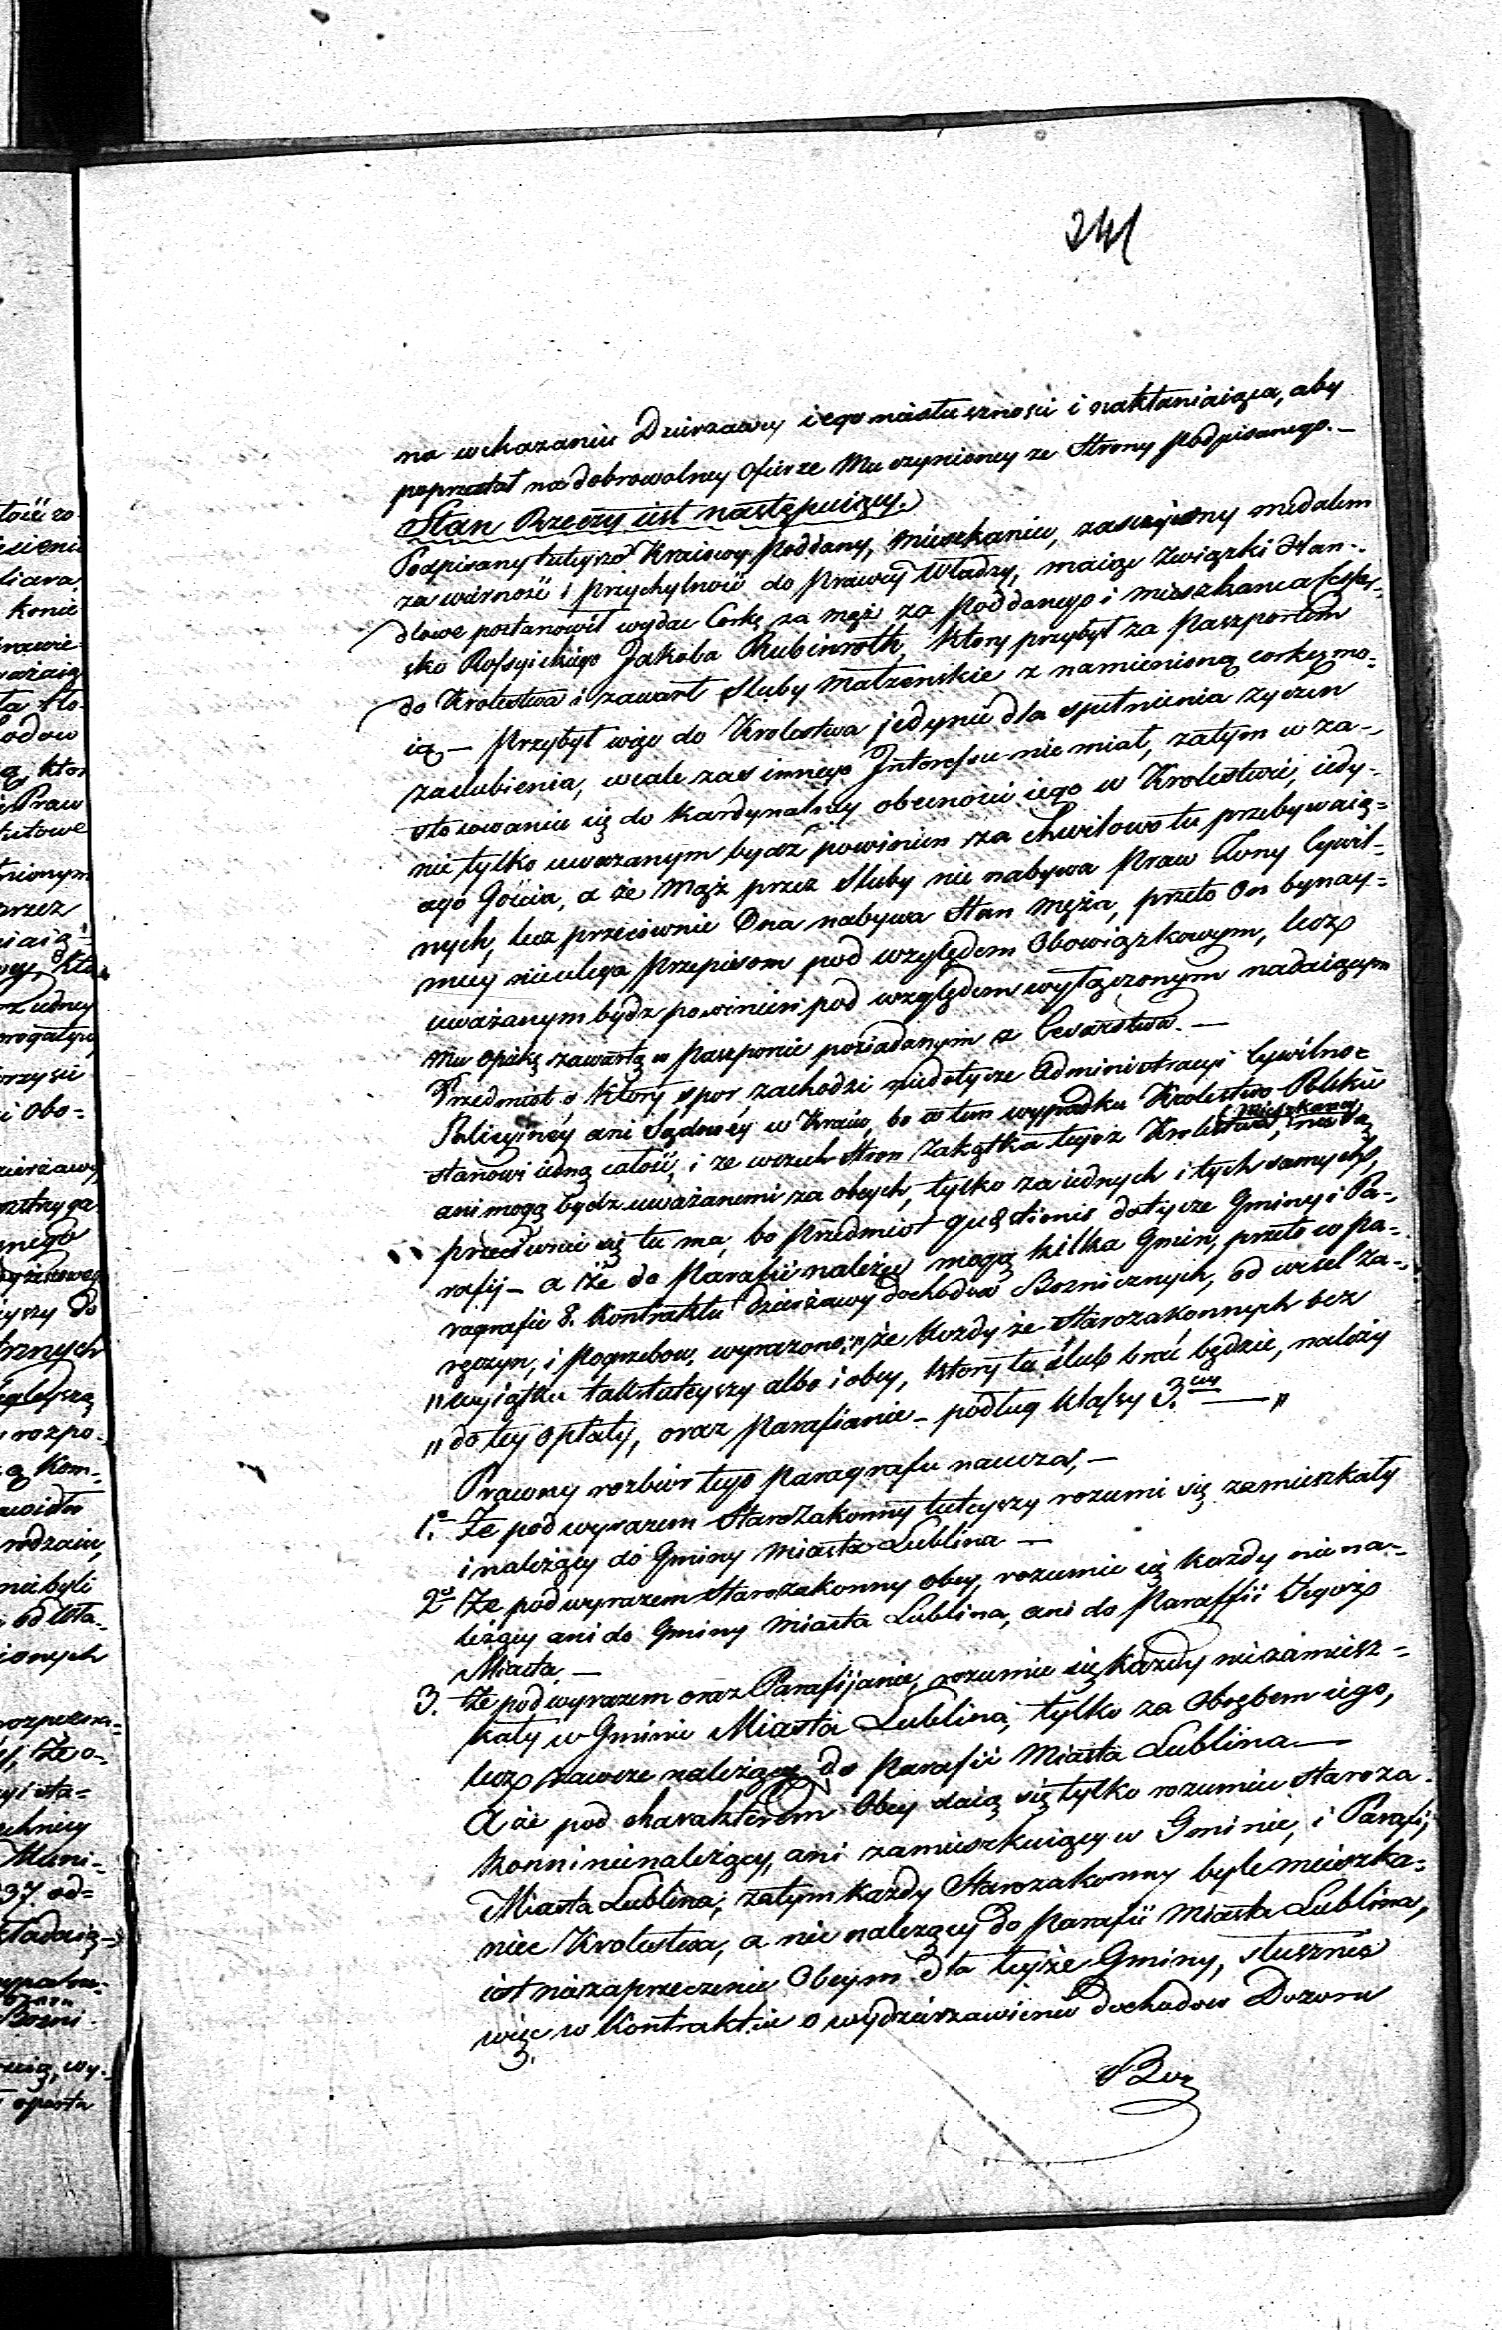 241
na wskazaniu Dzierzawcy iego niesłuszności i nakłaniaiąca, aby
poprzestał na dobrowolney ofierze Mu czynioney ze Strony Podpisanego. —
Stan Rzeczy iest następuiący.
Podpisany tuteyszo Kraiowy Poddany, Mieszkaniec, zaszczycony medalem
za wierność i przychylność do Prawey Władzy, maiąc Związki Han-
dlowe postanowił wydać Corkę za mąż za Poddanego i mieszkanca Cesar-
sko Rossyiskiego Jakoba Rubinroth, ktory przybył za Paszportem
do Krolestwa i zawarł Sluby Małzenskie z namienioną corką mo-
ią — Przybył więc do Krolestwa jedynie dla spełnienia zyczen
zaslubienia, wcale zas innego Interessu nie miał, zatym w za-
stosowaniu się do kardynalney obecności iego w Krolestwie, iedy-
nie tylko uwazanym bydź powinien za chwilowo tu przebywaią-
cego Gościa, a że Mąż przez Sluby nie nabywa Praw Zony Cywil-
nych, lecz przeciwnie Ona nabywa Stan Męża, przeto On bynay-
mniey nieulega Przepisom pod względem Obowiązkowym, lecz
uważanym bydz powinien pod względem wyłączonym nadaiącym
Mu opiekę zawartą w Paszporcie posiadanym z Cesarstwa. —
Przedmiot o ktory spor zachodzi niedotycze Administracyi Cywilno-
Policyiney ani Sądowey w Kraiu, bo w tem wypadku Krolestwo Polskie
stanowi iedną całość, i ze wszech stron zakątka tegoż Krolestwa, mieszkancy nie są
ani mogą bydz uważanemi za obcych, tylko za iednych i tych samych,
przeciwnie się tu ma, bo Przedmiot quęstionis dotycze Gminy i Pa-
rafij — a że do Parafii należeć mogą kilka Gmin, przeto w pa-
ragrafie 8. Kontraktu Dzierżawy dochodow Bozniczych, od wesel za-
ręczyn, i Pogrzebow, wyrazono; „że Kozdy ze Starozakonnych bez
„wyiątku tak tuteyszy albo i obcy, ktory tu ślub brać będzie, należy
„do tey opłaty, oraz Parafianie — podług Klassy 3.cey — „
Prawny rozbior tego Paragrafu naucza, —
1.o Że pod wyrazem Starozakonny tuteyszy rozumi się zamieszkały
i należący do Gminy Miasta Lublina —
2.o Że pod wyrazem Starozakonny obcy, rozumie się kazdy niena-
leżący ani do Gminy Miasta Lublina, ani do Paraffii tegoż
Miasta —
3. Że pod wyrazem oraz Parafijanie, rozumie się Każdy niezamiesz-
kały w Gminie Miasta Lublina, tylko za Obrębem iego,
lecz zawsze należący do Parafii Miasta Lublina —
A że pod charakterem Obcy daią się tylko rozumieć staroza-
konni nienależący, ani zamieszkuiący w Gminie, i Parafij
Miasta Lublina, zatym Kazdy Starozakonny byle mieszka-
niec Krolestwa, a nie należący do Parafii Miasta Lublina,
iest niezaprzeczenie Obcym dla teyże Gminy, słusznie
więc w Kontrakcie o wydzierzawienie dochodow Dozoru
3.
Boz